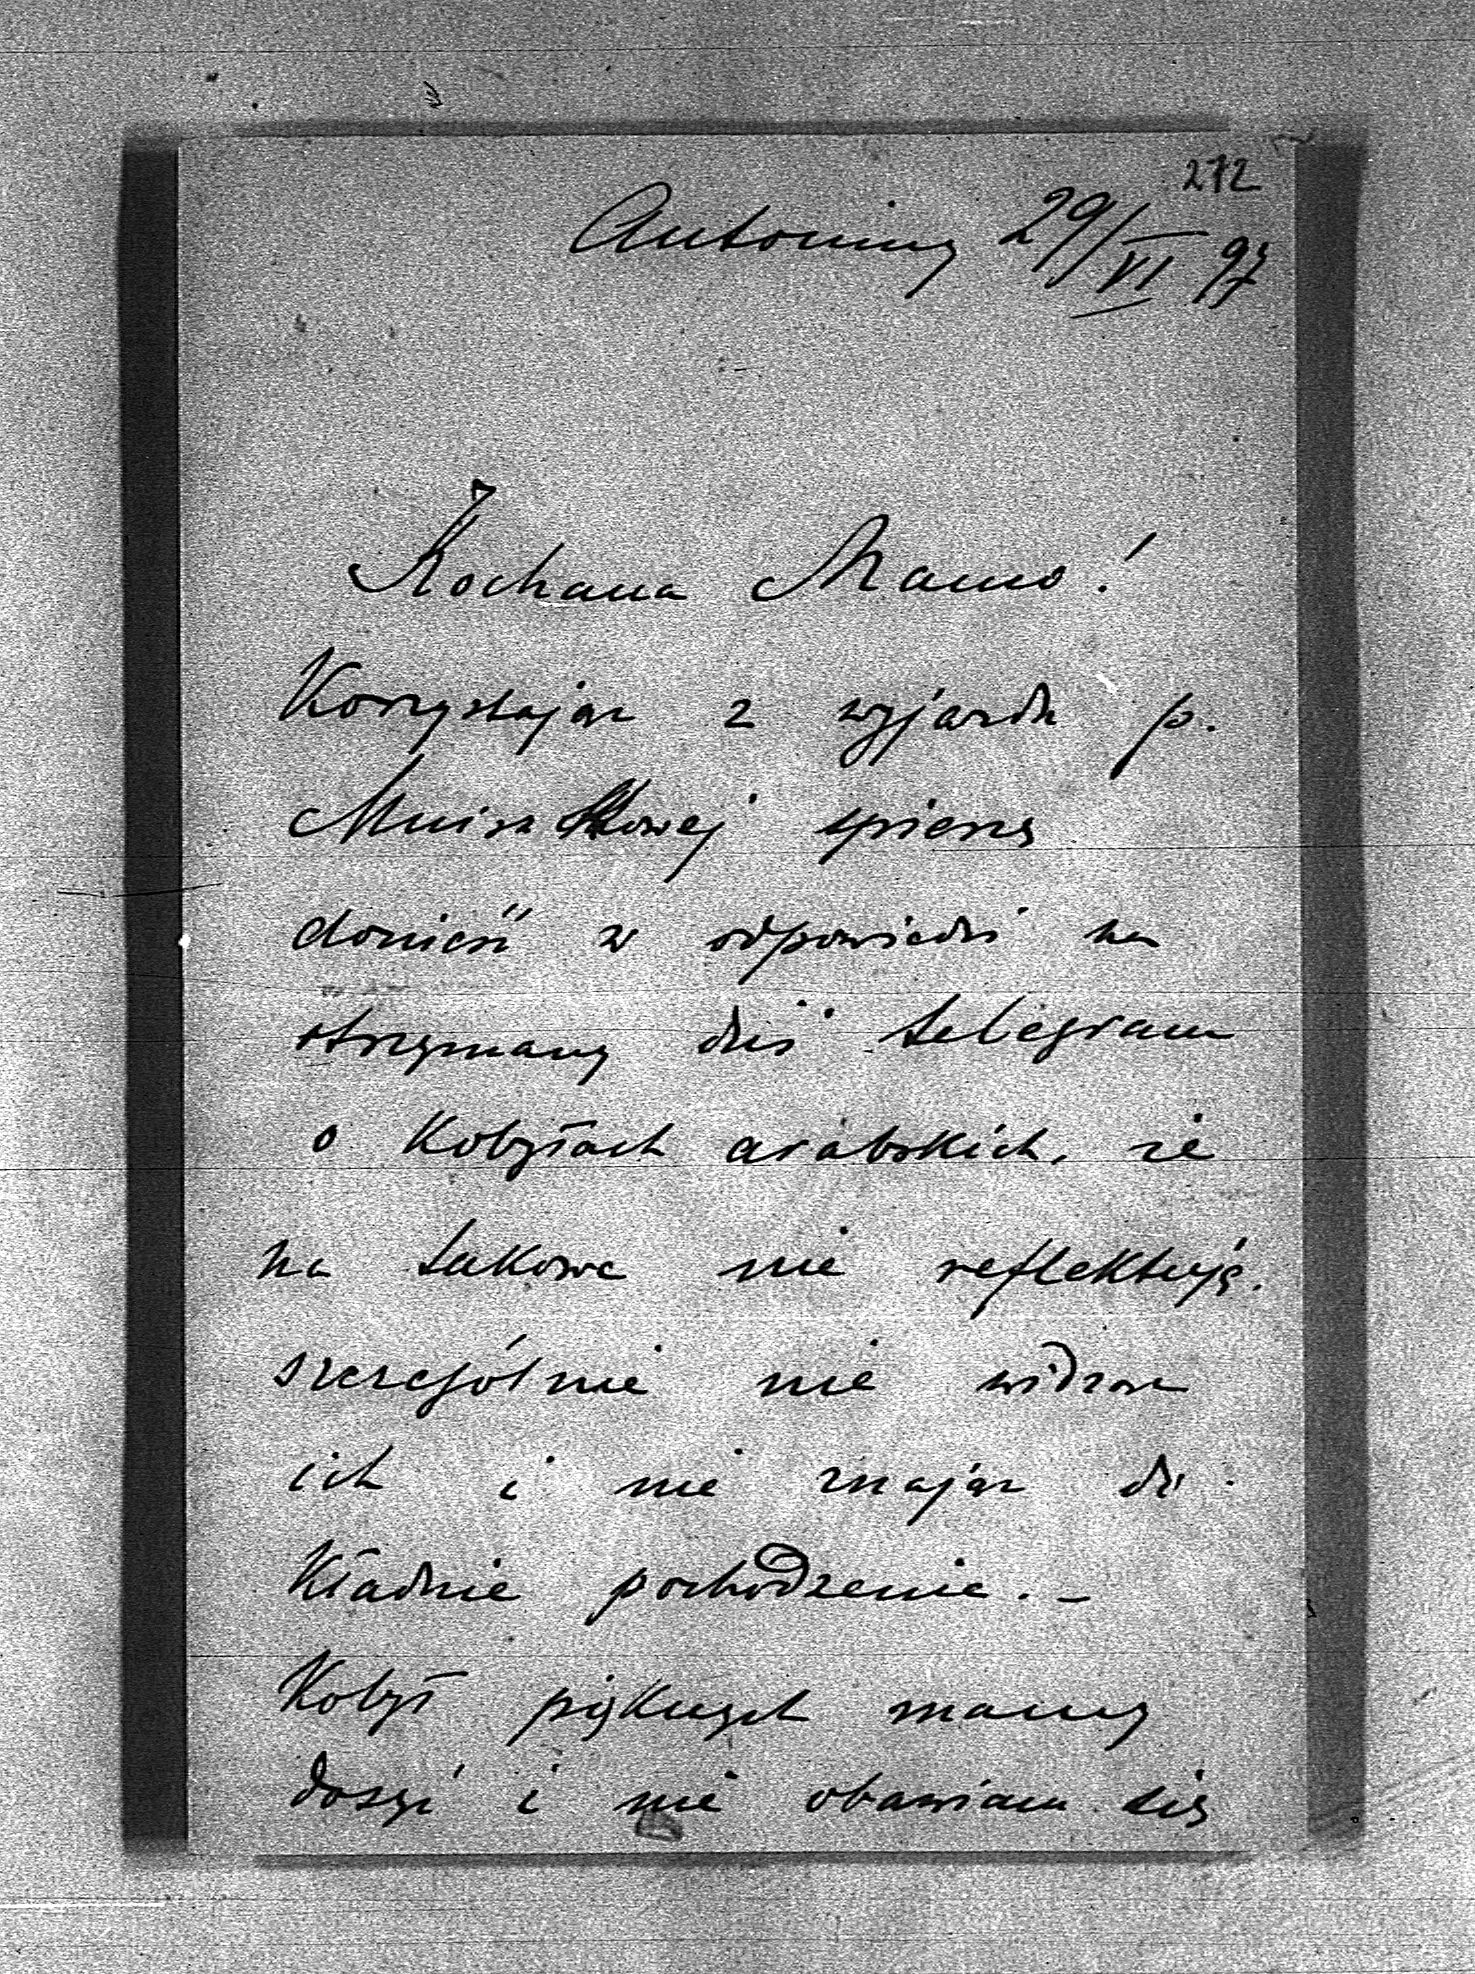 272
Antoniny 29/VI 97
Kochana Mamo!
Korzystając z wyjazdu p.
Mniszkowej spieszę
donieść w odpowiedzi na
otrzymany dziś telegram
o kobyłach arabskich, że
na takowe nie reflektuję.
szczególnie nie widząc
ich i nie znając do
kładnie pochodzenie. –
Kobył pięknych mamy
dosyć i nie obawiam się